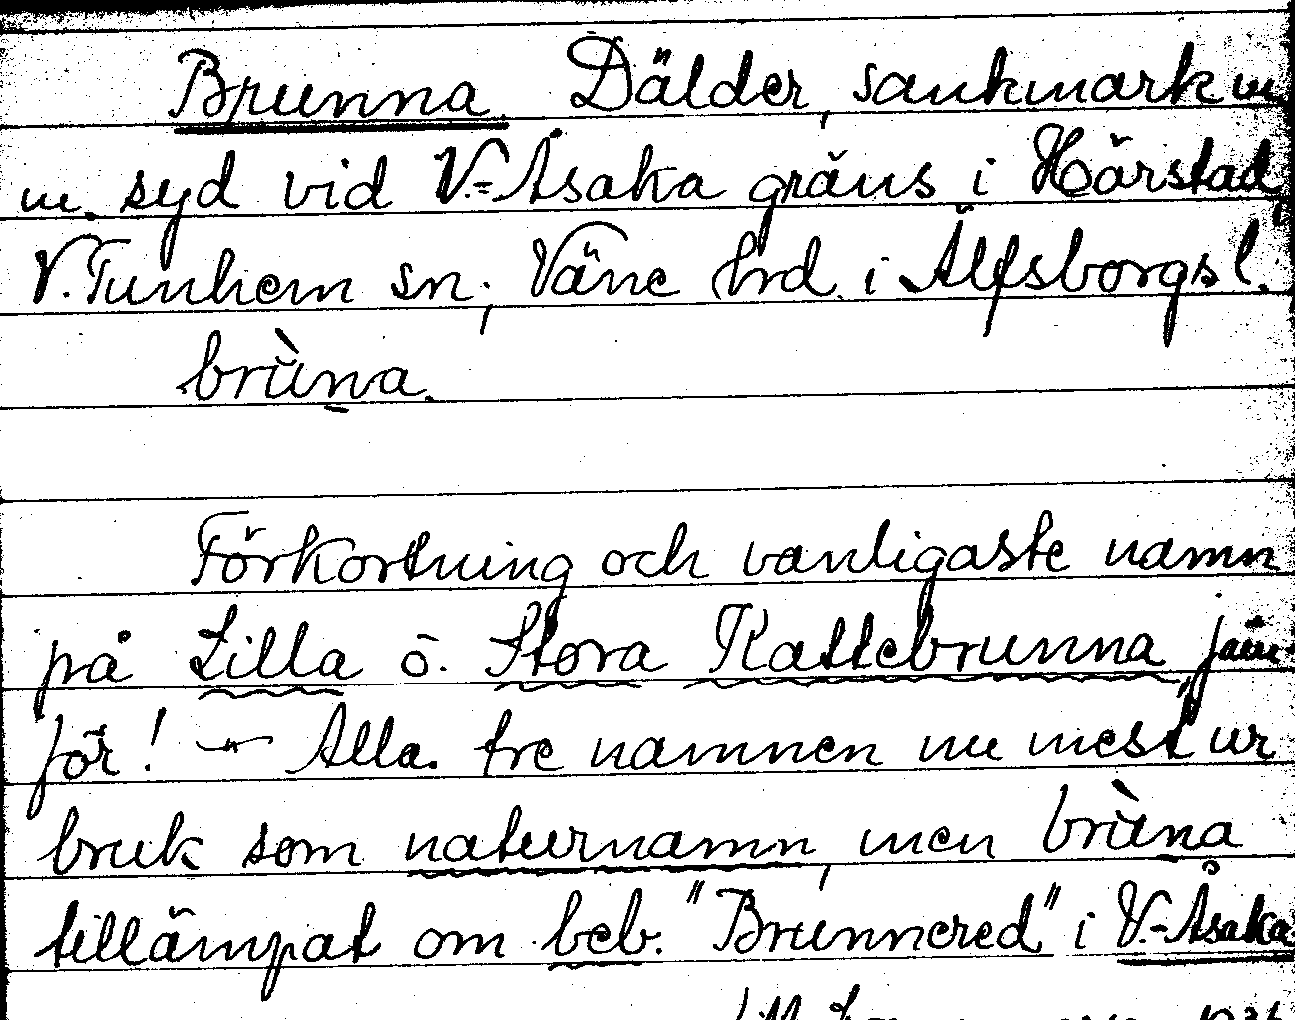 Brunna Dälder, sankmark m.
m. syd vid V.-Åsaka gräns i Hårstad,
V. Tunhem sn, Väne hrd. i Älfsborgs l.
brùna.
Förkortning och vanligaste namn
på Lilla o. Stora Kattebrunna, jäm-
för! — Alla tre namnen nu mest ur
bruk som naturnamn, men brùna
tillämpat om beb. "Brunnered" i V.-Åsaka.